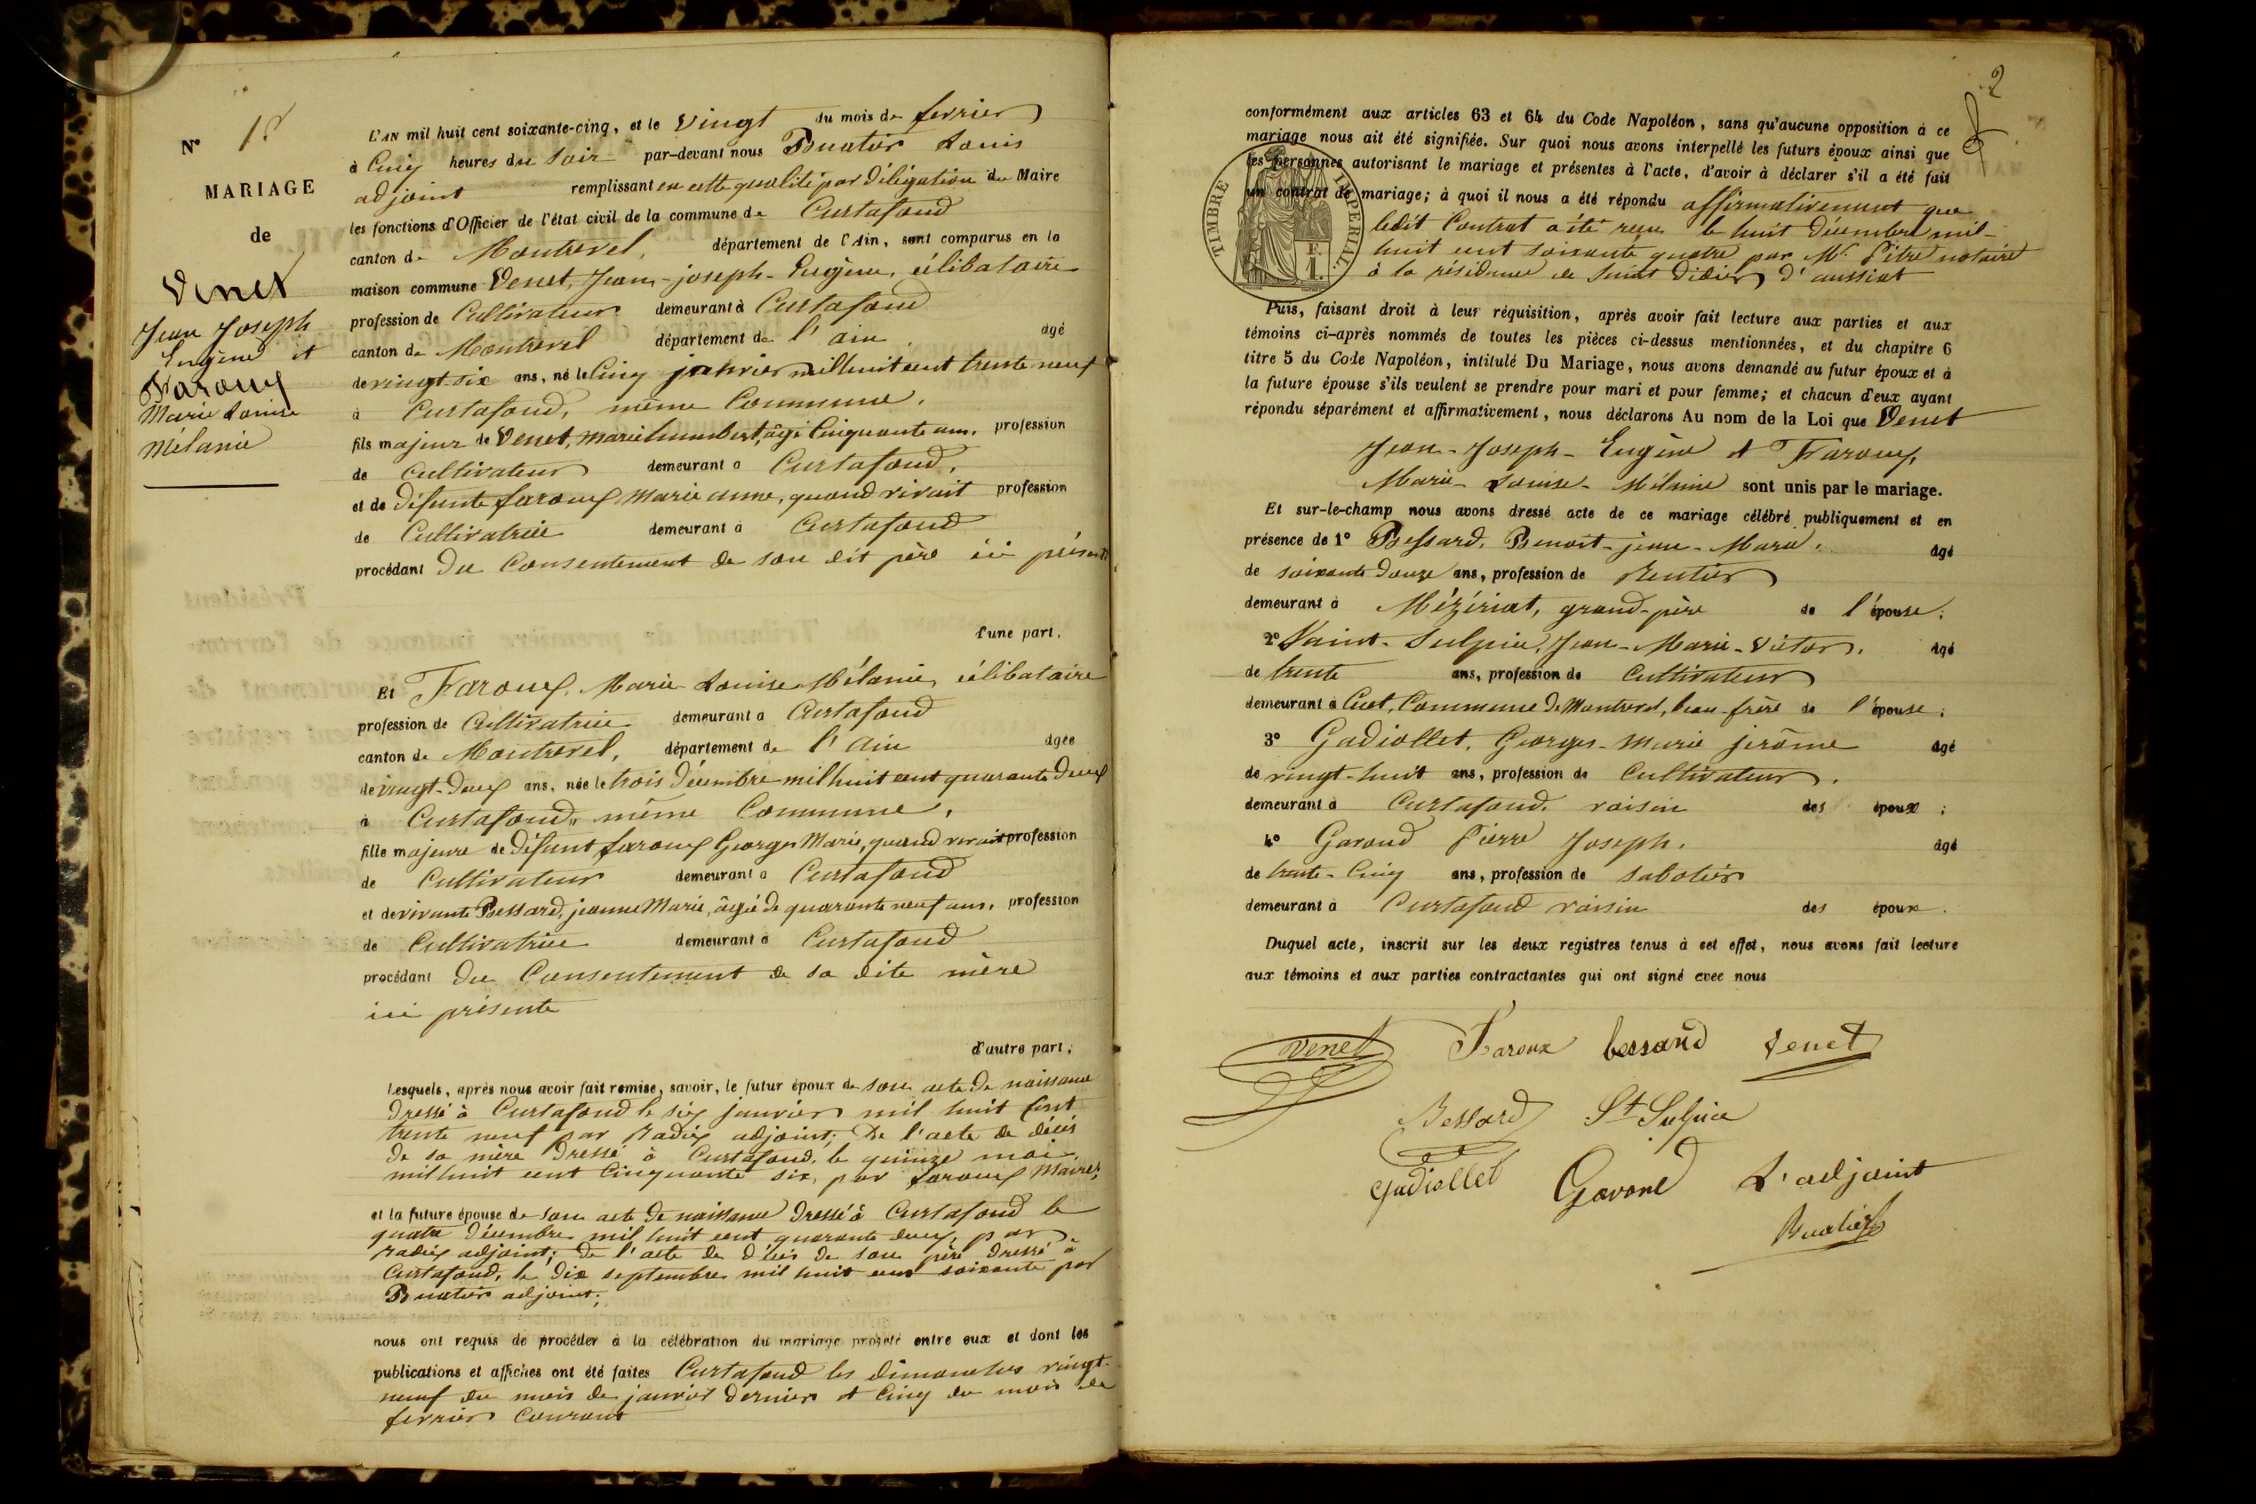 N° 1er
MARIAGE
de
Venet
Jean Joseph
Eugène et
Faroux
Marie Louise
Mélanie
L'AN mil huit cent soixante-cinq, et le vingt du mois de fevrier
à Cinq heures du soir par-devant nous Buatier Louis
adjoint remplissant en cette qualité par délégation du Maire
les fonctions d'Officier de l'état civil de la commune de Curtafond
canton de Montrevel, département de l'Ain, sont comparus en la
maison commune Venet, Jean-joseph-Eugène, célibataire
profession de Cultivateur demeurant à Curtafond
canton de Montrevel département de l'ain âgé
de vingt-six ans, né le Cinq janvier mil huit cent trente neuf
à Curtafond, même Commune,
fils majeur de Venet, marie humbert, âgé Cinquante ans, profession
de Cultivateur demeurant à Curtafond,
et de défunte faroux marie anne, quand vivait profession
de Cultivatrice demeurant à Curtafond
procédant du Consentement de son dit père ici présent
d'une part.
Et Faroux, Marie Louise Mélanie, célibataire
profession de Cultivatrice demeurant à Curtafond
canton de Montrevel, département de l'Ain âgée
de vingt-deux ans, née le trois décembre mil huit cent quarante deux
à Curtafond, même Commune,
fille majeure de défunt faroux Georges Marie, quand vivait profession
de Cultivateur demeurant à Curtafond
et de vivante Bessard, jeanne Marie, âgée de quarante neuf ans, profession
de Cultivatrice demeurant à Curtafond
procédant du Consentement de sa dite mère
ici présente
d'autre part;
Lesquels, après nous avoir fait remise, savoir, le futur époux de son acte de naissance
dressé à Curtafond le six janvier mil huit Cent
trente neuf par Radix adjoint; De l'acte de décès
de sa mère dressé à Curtafond, le quinze mai
mil huit cent Cinquante six, par faroux Maire;
et la future épouse de son acte de naissance dressé à Curtafond le
quatre décembre mil huit cent quarante deux, par
Radix adjoint; de l'acte de décès de son père dressé à
Curtafond, le dix septembre mil huit cent soixante par
Buatier adjoint;
nous ont requis de procéder à la célébration du mariage projeté entre eux et dont les
publications et affiches ont été faites Curtafond les dimanches vingt-
neuf du mois de janvier dernier et Cinq du mois de
fevrier Courant
2
conformément aux articles 63 et 64 du Code Napoléon, sans qu'aucune opposition à ce
mariage nous ait été signifiée. Sur quoi nous avons interpellé les futurs époux ainsi que
les personnes autorisant le mariage et présentes à l'acte, d'avoir à déclarer s'il a été fait
un contrat de mariage; à quoi il nous a été répondu affirmativement que
ledit Contrat a été reçu le huit décembre mil-
huit cent soixante quatre par Me Pitre notaire
à la résidence de saint didier d'aussiat
TIMBRE IMPERIAL.
F.
1.
Puis, faisant droit à leur réquisition, après avoir fait lecture aux parties et aux
témoins ci-après nommés de toutes les pièces ci-dessus mentionnées, et du chapitre 6
titre 5 du Code Napoléon, intitulé Du Mariage, nous avons demandé au futur époux et à
la future épouse s'ils veulent se prendre pour mari et pour femme; et chacun d'eux ayant
répondu séparément et affirmativement, nous déclarons Au nom de la Loi que Venet
Jean-Joseph-Eugène et Faroux,
Marie-Louise-Mélanie sont unis par le mariage.
Et sur-le-champ nous avons dressé acte de ce mariage célébré publiquement et en
présence de 1° Bessard, Benoit-jean-Marie, âgé
de soixante douze ans, profession de Rentier
demeurant à Mézériat, grand-père de l'épouse;
2° Saint-Sulpice, Jean-Marie-Victor, âgé
de trente ans, profession de Cultivateur
demeurant à Cuet, Commune de Montrevel, beau-frère de l'épouse;
3° Gadiollet, Georges-Marie jerôme âgé
de vingt-huit ans, profession de Cultivateur,
demeurant à Curtafond, voisin des époux;
4° Garond Pierre Joseph, âgé
de trente-Cinq ans, profession de sabotier
demeurant à Curtafond voisin des époux.
Duquel acte, inscrit sur les deux registres tenus à cet effet, nous avons fait lecture
aux témoins et aux parties contractantes qui ont signé avec nous
Venet Faroux bessard Venet
Bessard St Sulpice
Gadiollet Gavand L'adjoint
Buatier